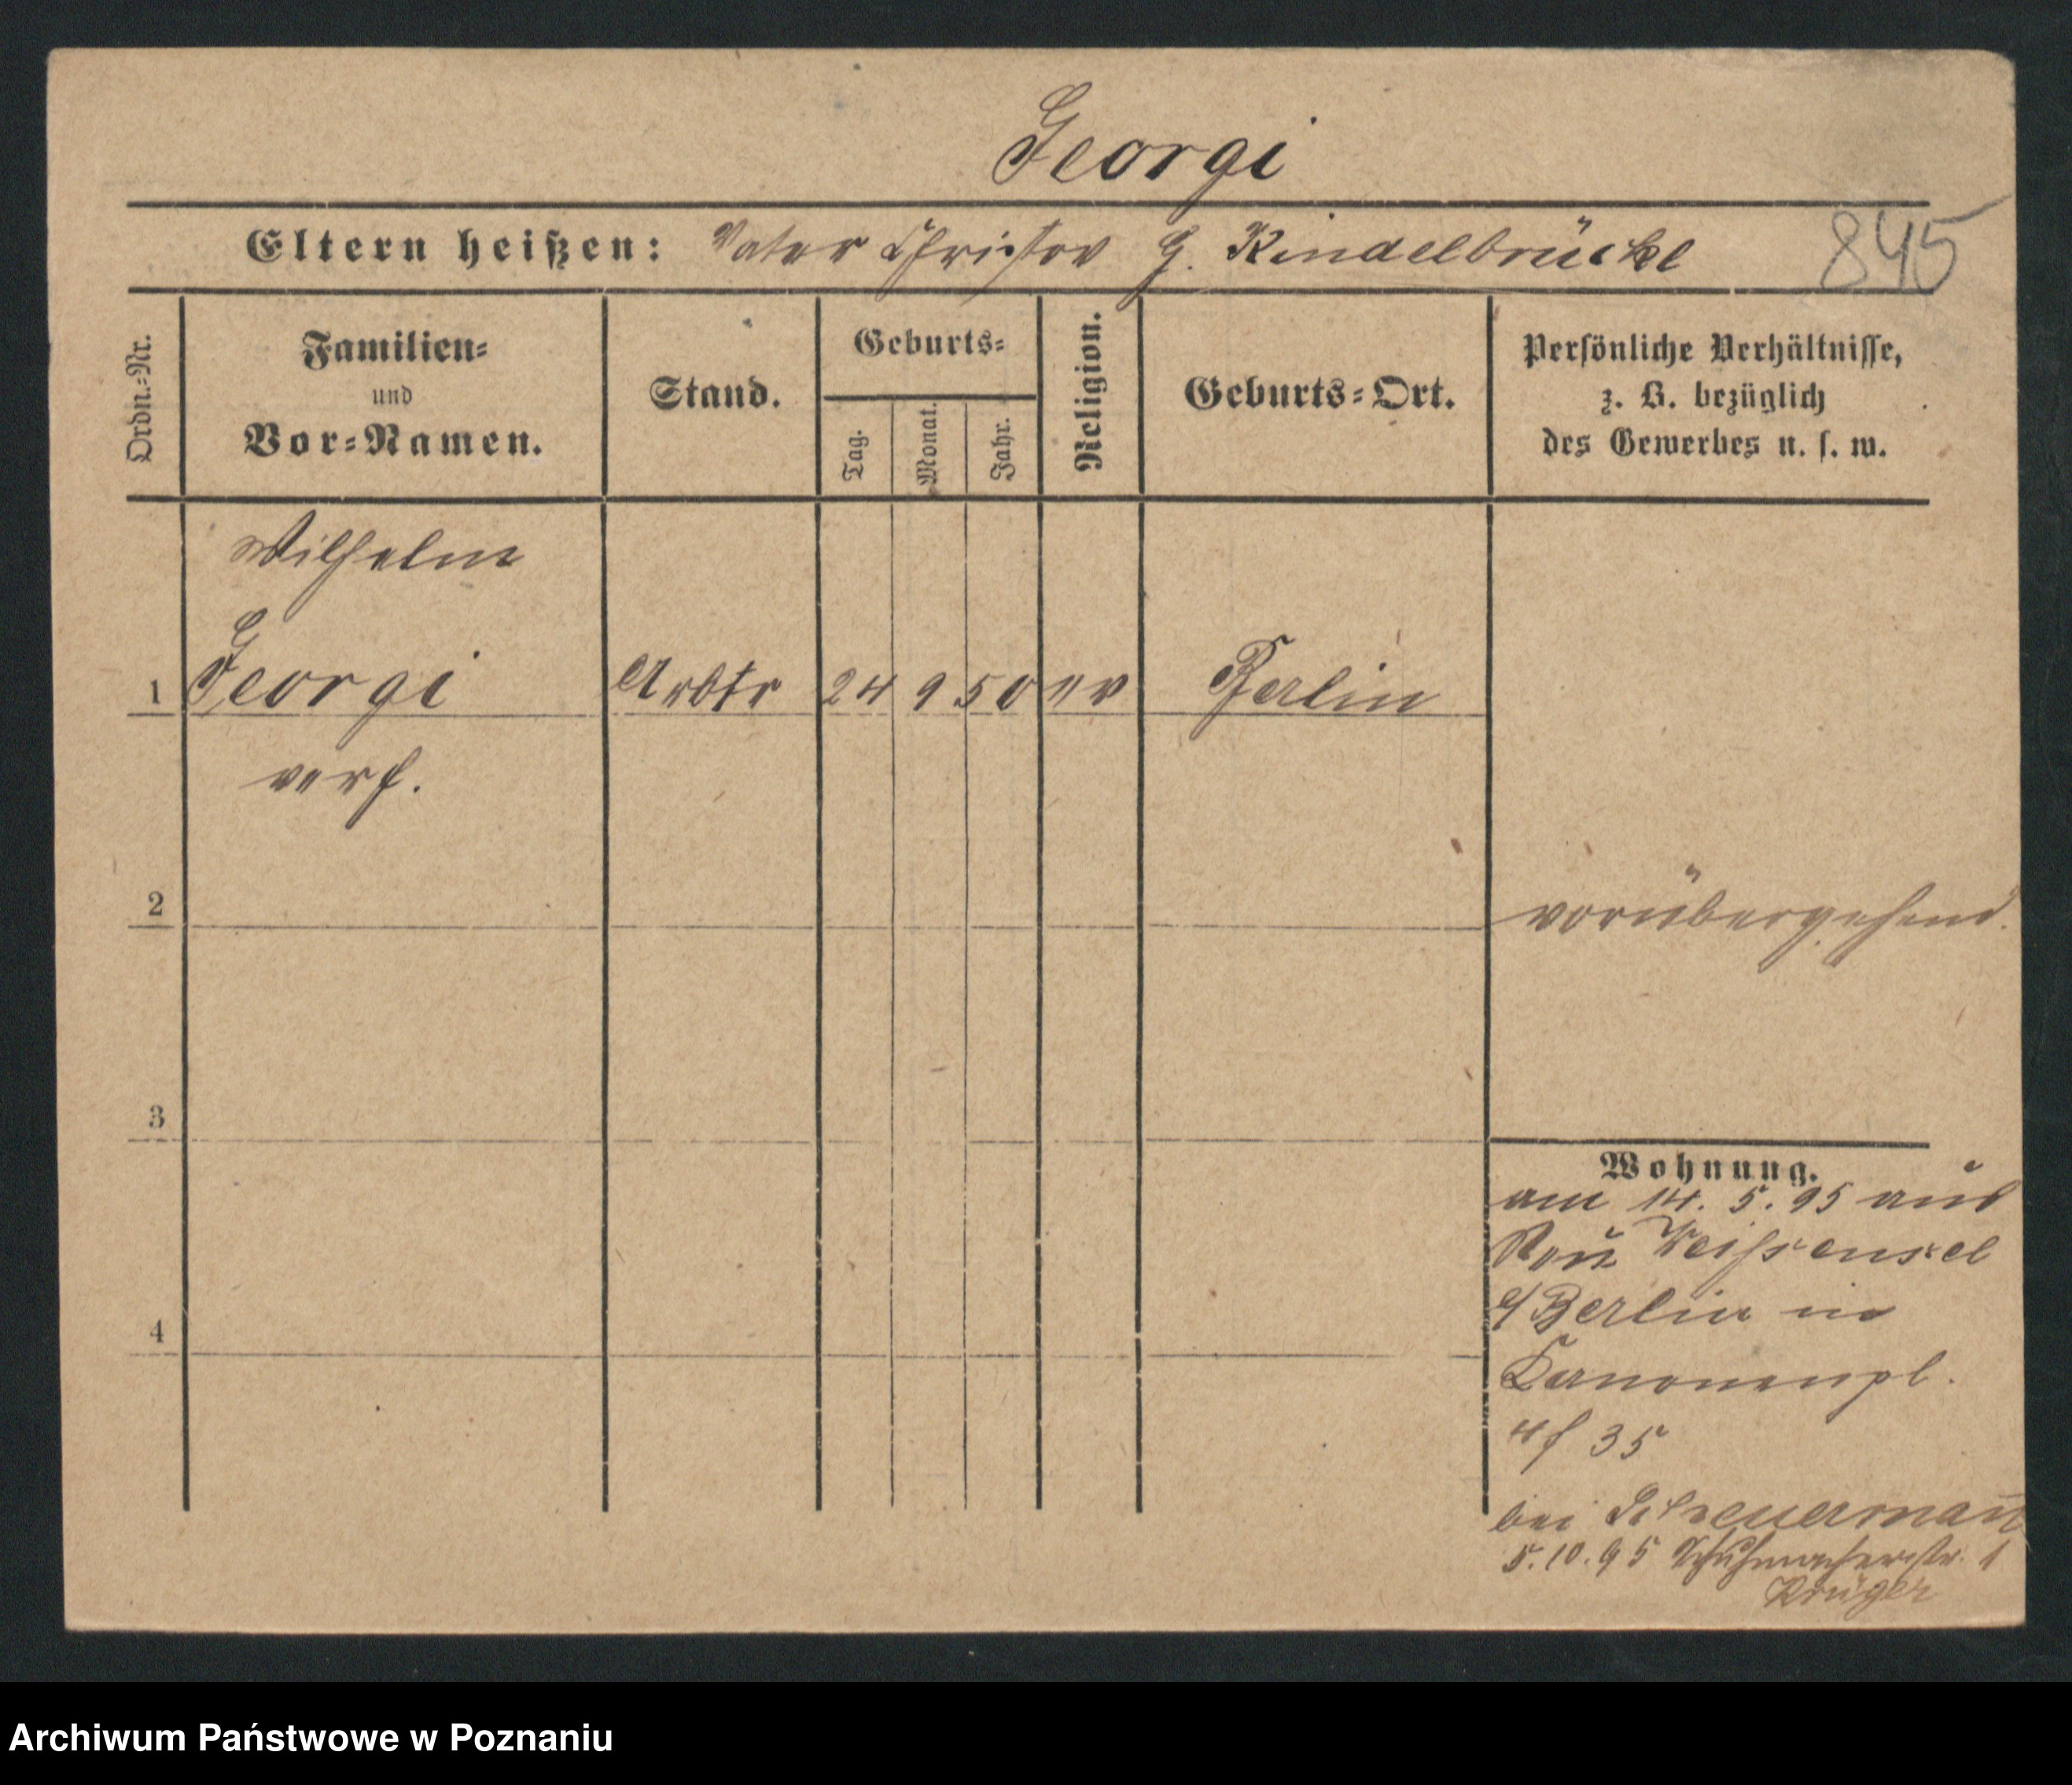 Georgi
Eltern heißen: Vater Christov G. Kindelbrück
845
Ordn.-Nr.
Familien-
und
Vor-Namen.
Stand.
Geburts-
Tag.
Monat.
Jahr.
Religion.
Geburts-Ort.
Persönliche Verhältnisse,
z. B. bezüglich
des Gewerbes u. s. w.
Wilhelm
1 Georgi Arbtr 24 9 50 ev Berlin
verh.
2
vorübergehend.
3
Wohnung.
am 14. 5. 95 aus
Neu Weißensee
b/Berlin in
Kanonenpl.
35
4
bei Scheuermann
5. 10. 95 Schuhmacherstr. 1
Krüger
Archiwum Państwowe w Poznaniu